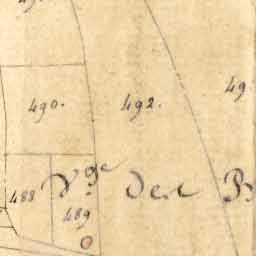 490.
492.
49
488
Vge Del
489